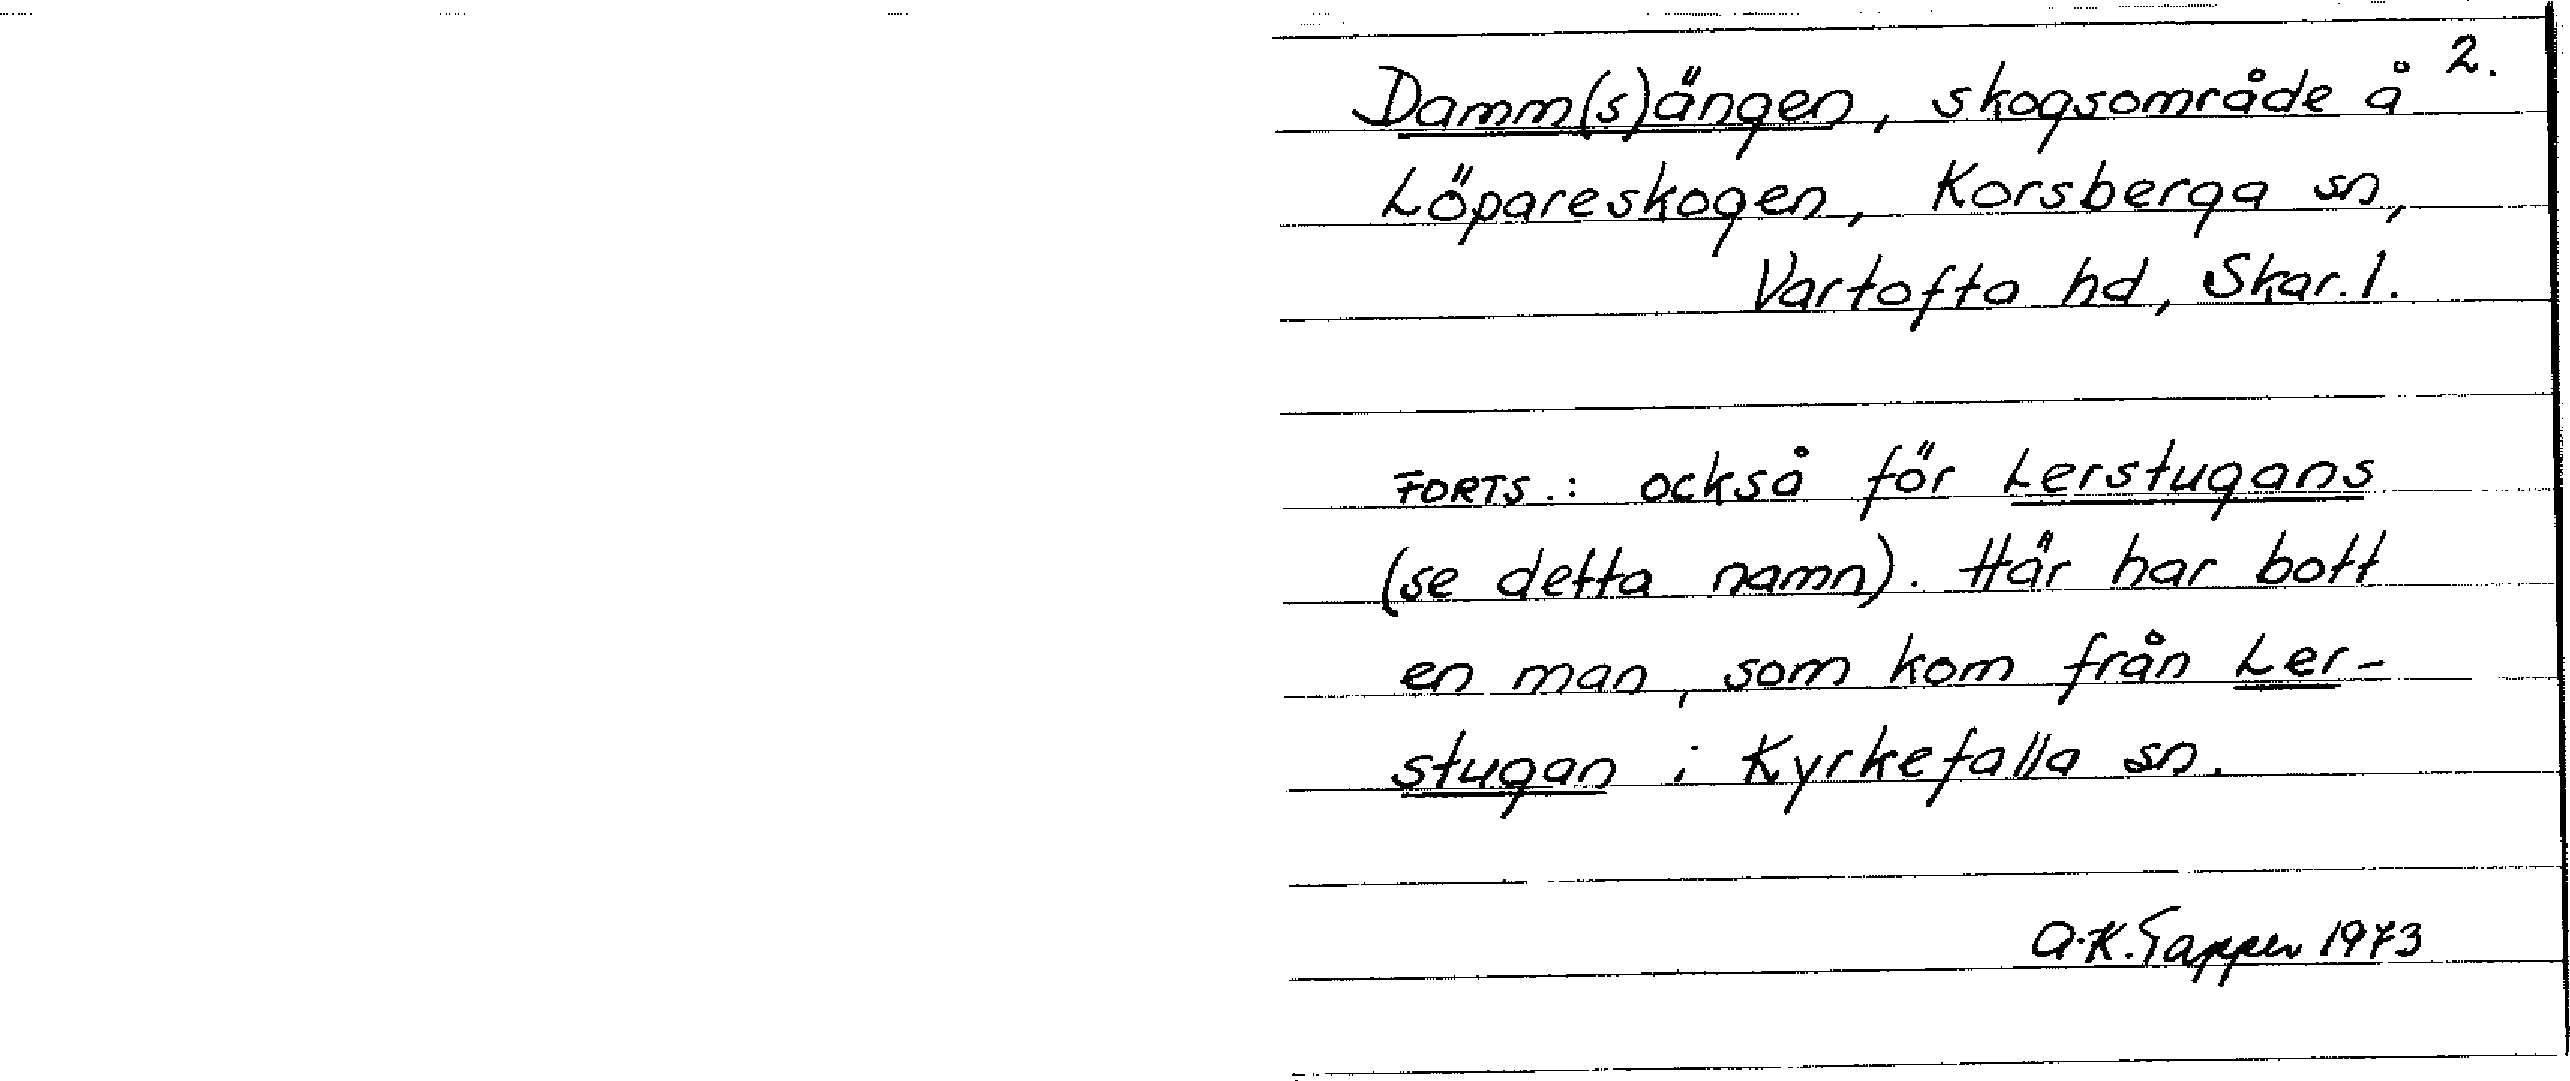 2.
Damm(s)ängen, skogsområde å
Löpareskogen, Korsberga sn,
Vartofta hd, Skar. l.
FORTS.: också för Lerstugans
(se detta namn). Här har bott
en man, som kom från Ler-
stugan i Kyrkefalla sn.
A-K. Tapper 1973